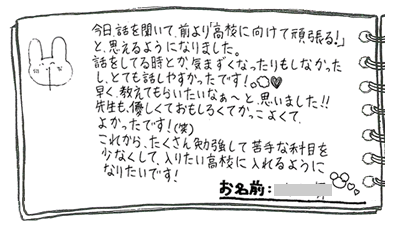 今日、話を聞いて、前より「高校に向けて頑張る!」
と、思えるようになりました。
話をしてる時とか、気まずくなったりもしなかった
し、とても話しやすかったです!。
早く、教えてもらいたいなぁ〜と思いました!!
先生も、優しくておもしろくてかっこよくて、
よかったです!(笑)
これから、たくさん勉強して苦手な科目を
少なくして、入りたい高校に入れるように
なりたいです!
お名前: